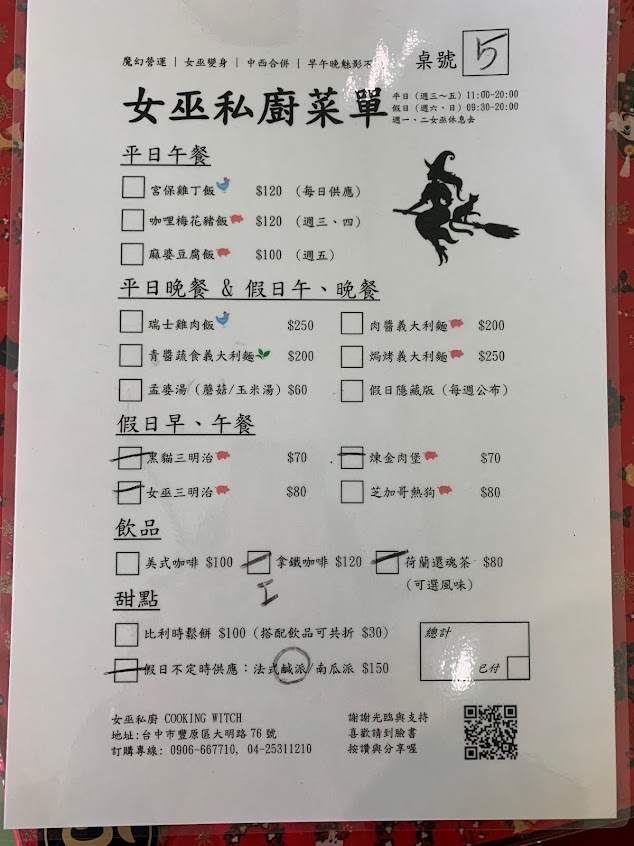 魔幻營運 | 女巫變身 | 中西合併 | 早午晚魅影不
桌號 5
女巫私廚菜單
平日（週三～五）11:00-20:00
假日（週六、日）09:30-20:00
週一、二女巫休息去
平日午餐
宮保雞丁飯 $120 （每日供應）
咖哩梅花豬飯 $120 （週三、四）
麻婆豆腐飯 $100 （週五）
平日晚餐 & 假日午、晚餐
瑞士雞肉飯 $250 肉醬義大利麵 $200
青醬蔬食義大利麵 $200 焗烤義大利麵 $250
孟婆湯（蘑菇/玉米湯）$60 假日隱藏版（每週公布）
假日早、午餐
黑貓三明治 $70 煉金肉堡 $70
女巫三明治 $80 芝加哥熱狗 $80
飲品
美式咖啡 $100 拿鐵咖啡 $120 荷蘭還魂茶 $80
（可選風味）
甜點
比利時鬆餅 $100（搭配飲品可共折 $30）
假日不定時供應：法式鹹派/南瓜派 $150
總計
已付
女巫私廚 COOKING WITCH
地址:台中市豐原區大明路 76 號
訂購專線: 0906-667710, 04-25311210
謝謝光臨與支持
喜歡請到臉書
按讚與分享喔